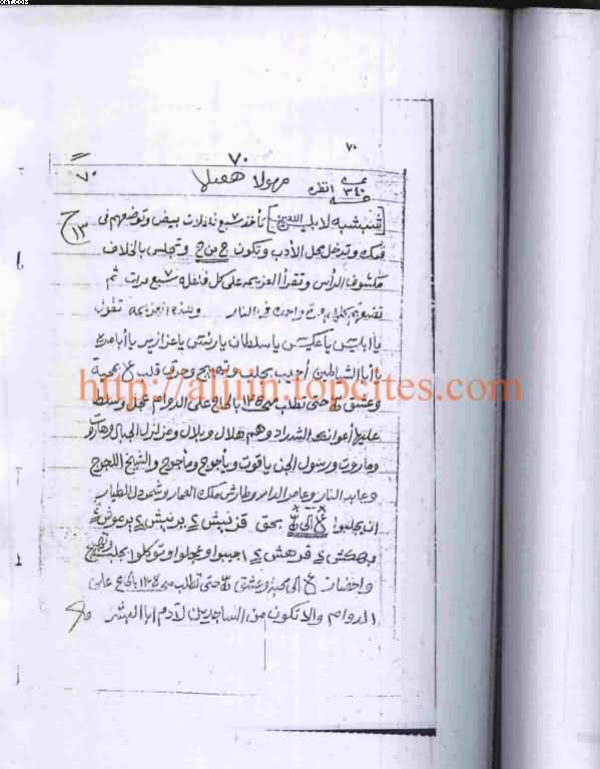 ٧٠
٧٠
٧٠
مهولا هقبلا
٣٤٠ انظره
١٣
[شبشبه لابليس] تأخذ ٧ سبع بيض وتوضعهم فى
فمك وتدخل محل الأدب وتكون ج من ج وتجلس بالخلاف
مكشوف الرأس وتقرأ العزيمه على كل سبع مرات ثم
تضعهم واحده فى النار وهذه العزيمه تقول
يا ابليس يا عكيس يا سلطان يا رئيس يا عزازير يا أبامره
يا أبا الشياطين أجيب بجلب وتهييج وحرق قلب ع بمحبة
وعشق حتى تطلب منه بالحاح على الدوام عجل وسلط
عليها أعوانك الشداد وهم هلال وبلال ومزلزل الجبال وهاروت
وماروت ورسول الجن ياقوت ويأجوج ومأجوج والشيخ اللجوج
وعابد النار وعامر الدار وطارش ملك العمار وشمردل الطيار
ان يجلبوا إلى بحق قزنيش ٢ برنيش ٢ برعوش ٢
بهكش ٢ قرهش ٢ اجيبوا وعجلوا وتوكلوا بجلب وتهييج
واحضار ع الى محبة وعشق حتى تطلب منه بالحاح على
الدوام والا تكون من الساجدين لآدم ابا البشر
http://aljiin.topcites.com